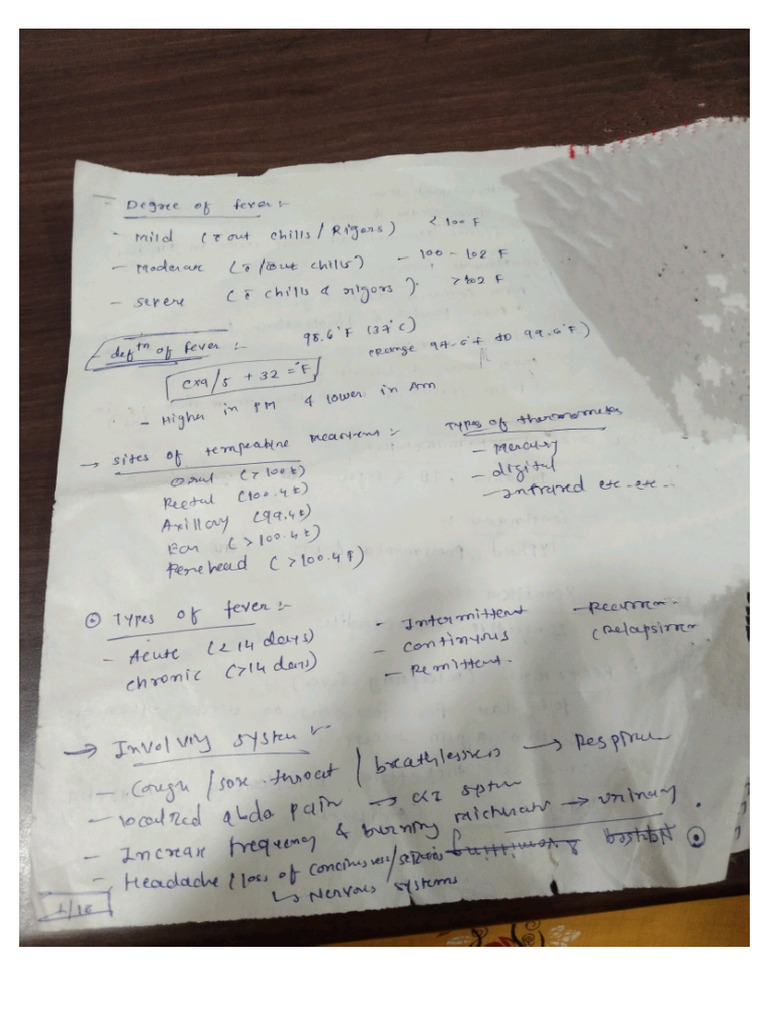 - Degree of fever :-
- Mild (c̄ out chills / Rigors) < 100 F
- Moderate (c̄ / c̄out chills) - 100 - 102 F
- severe (c̄ chills & rigors) >102 F
- defⁿ of fever :- 98.6°F (37°C)
(Range 97.6°F to 99.6°F)
C x 9/5 + 32 = °F
- Higher in PM & lower in Am
→ Sites of
Oral (>100 F)
Rectal (100.4 F)
Axillary (99.4 F)
Ear (>100.4 F)
Forehead (>100.4 F)
Types of thermometer
- Mercury
- digital
- Infrared etc. etc.
⊙ Types of fever :-
- Acute (< 14 days)
chronic (>14 days)
- Intermittent
- continuous
- Remittent.
→ system :-
- Cough / sore throat / breathlessness →
- localized abdo pain →
- Increase frequency & burning → urinary
- Headache / loss of
↳ Nervous systems
1/16